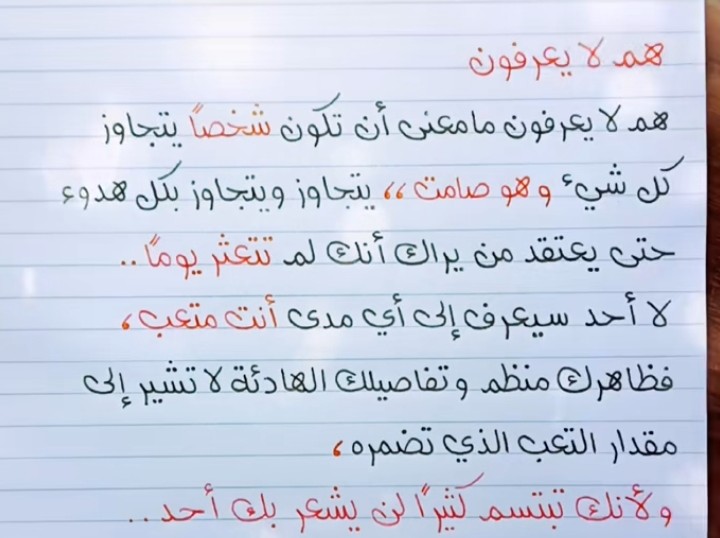 هم لا يعرفون
هم لا يعرفون ما معنى أن تكون شخصاً يتجاوز
كل شيء وهو صامت ،، يتجاوز ويتجاوز بكل هدوء
حتى يعتقد من يراك أنك لم تتعثر يوماً ..
لا أحد سيعرف إلى أي مدى أنت متعب ،
فظاهرك منظم وتفاصيلك الهادئة لا تشير إلى
مقدار التعب الذي تضمره ،
ولأنك تبتسم كثيراً لن يشعر بك أحد ...